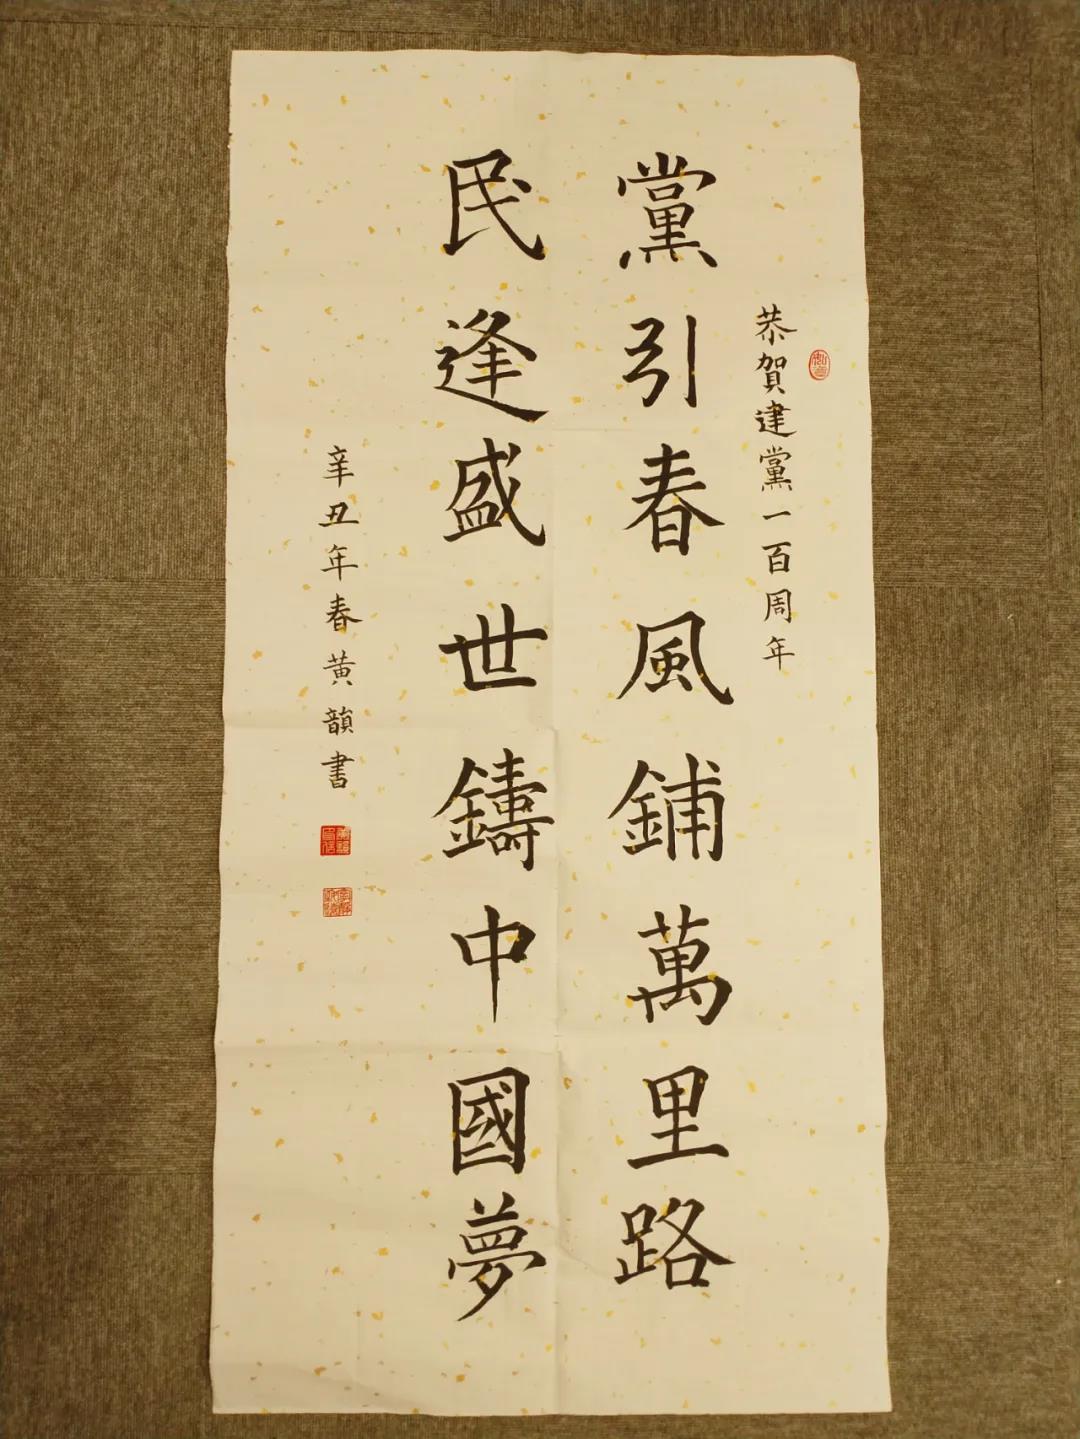 恭賀建黨一百周年
黨引春風鋪萬里路
民逢盛世鑄中國夢
辛丑年春黃韻書